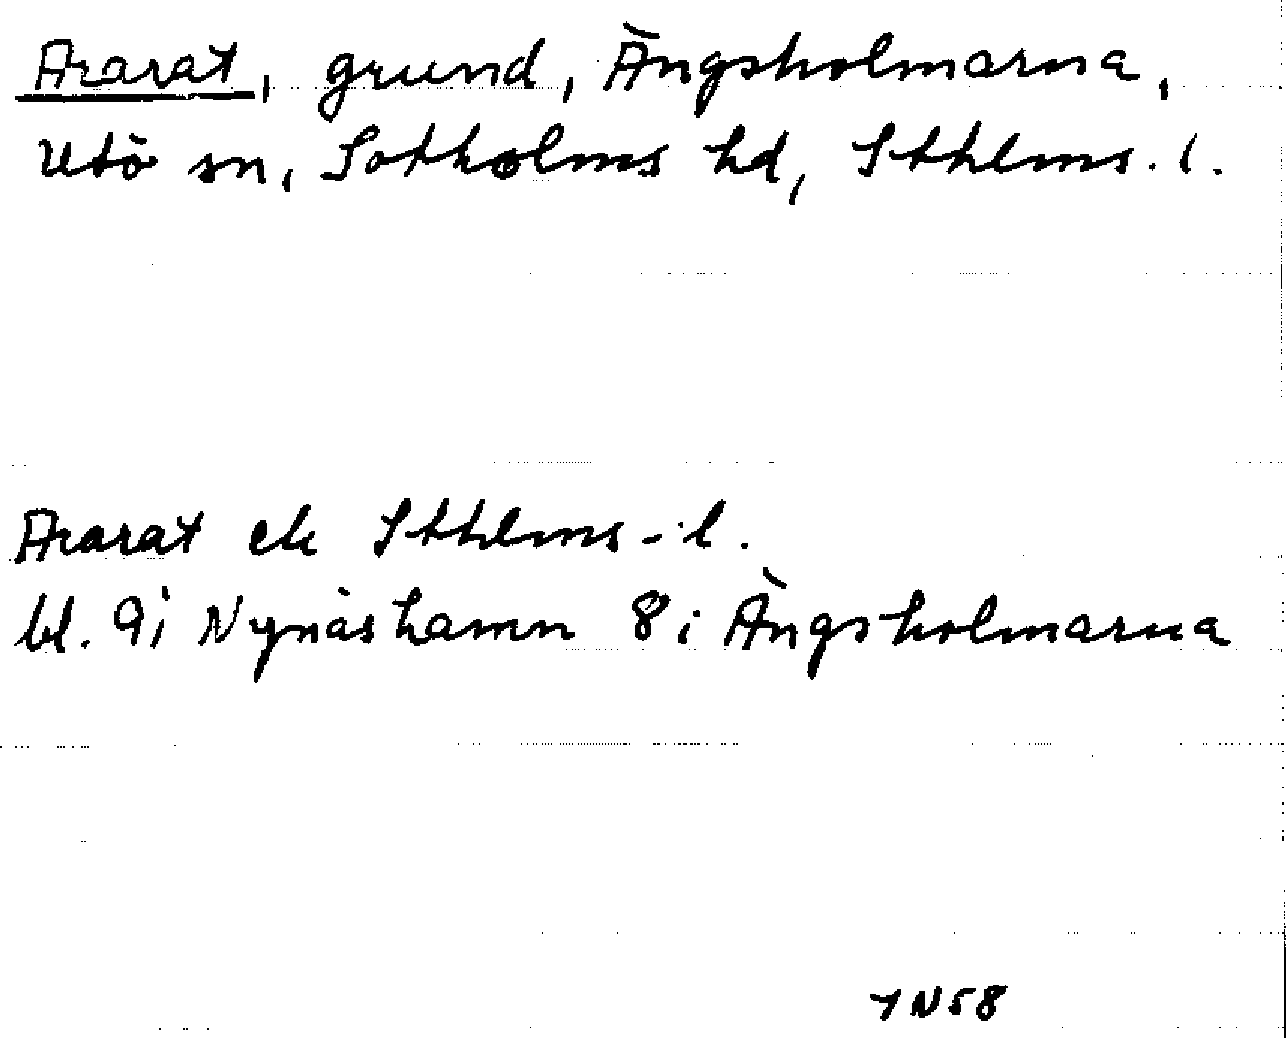 Ararat, grund, Ängsholmarna,
Utö sn, Sotholms hd, Sthlms. l.
Ararat ek Sthlms-l.
bl. 9i Nynäshamn 8i Ängsholmarna
YN58